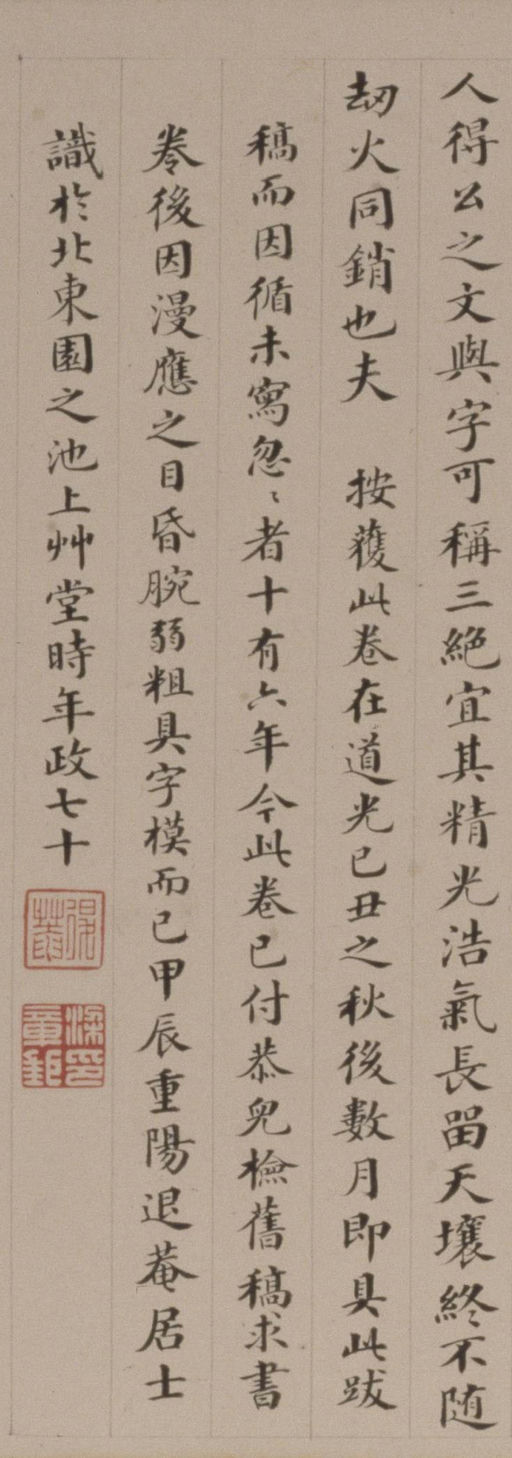 人得公之文與字可稱三絕宜其精光浩氣長留天壤終不随
劫火同銷也夫 按獲此卷在道光己丑之秋後數月即具此跋
稿而因循未寫忽〻者十有六年今此卷已付恭兒檢舊稿求書
卷後因漫應之目昏腕弱粗具字模而已甲辰重陽退菴居士
識於北東園之池上艸堂時年政七十